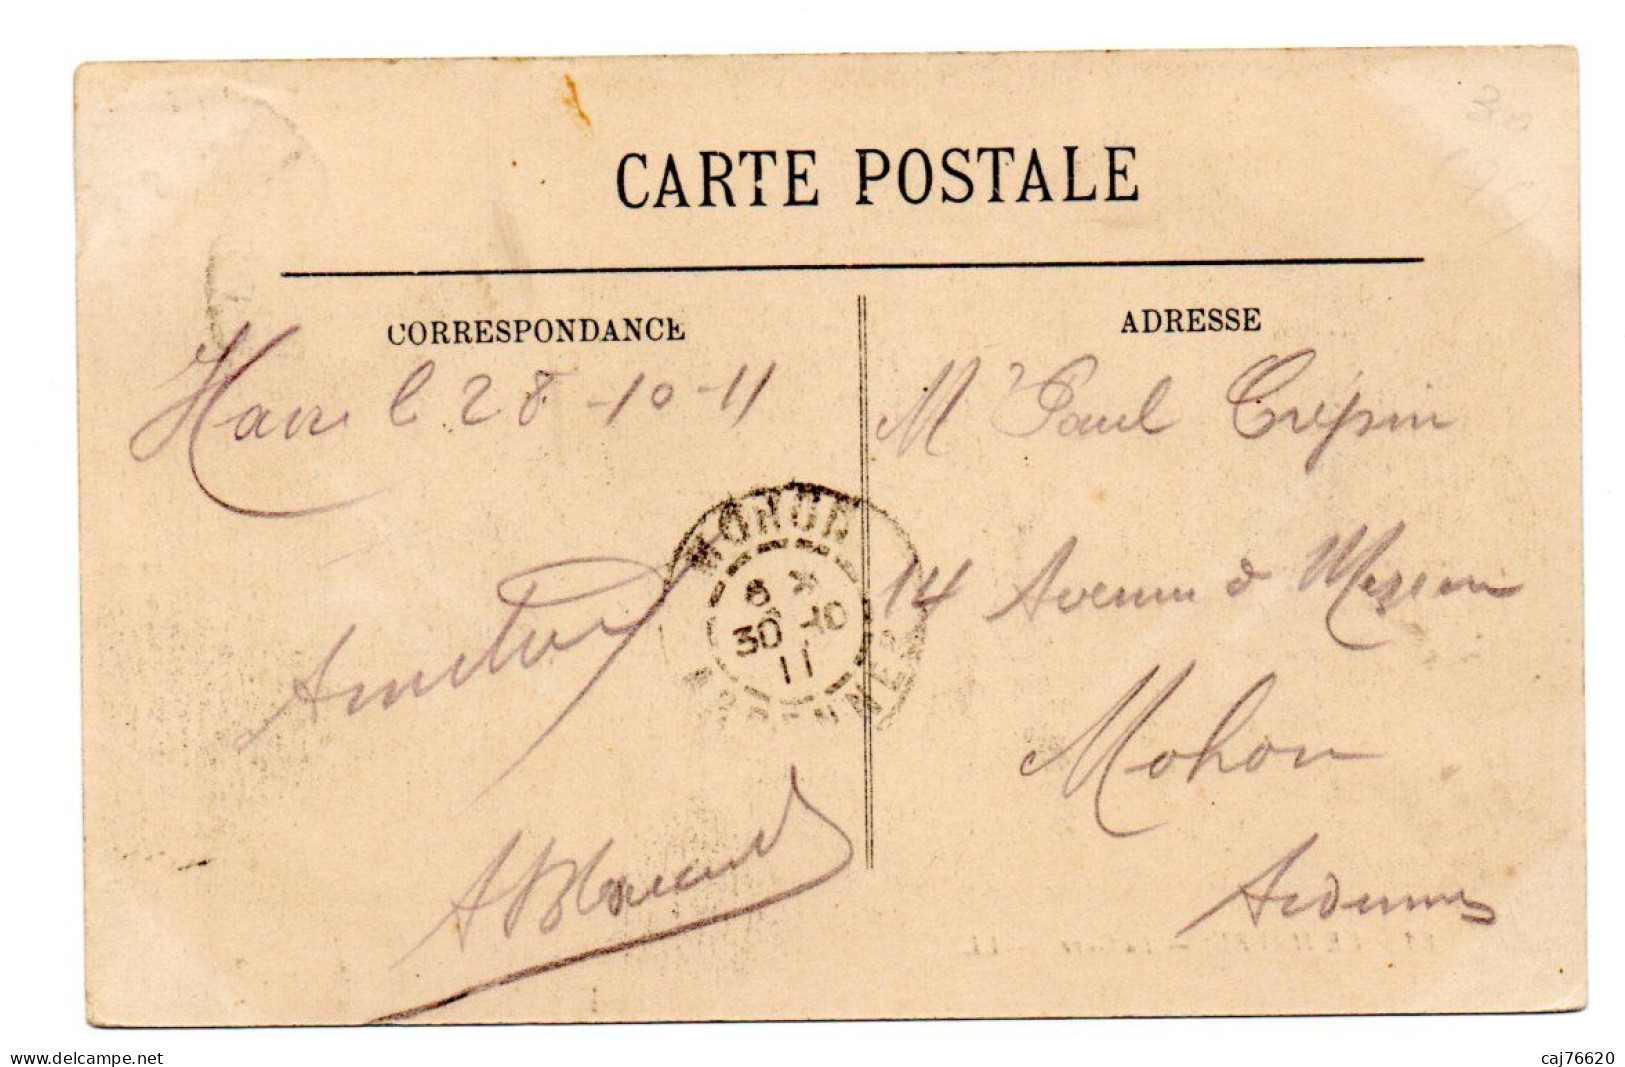 CARTE POSTALE
CORRESPONDANCE
ADRESSE
Havre le 28-10-11
Mr Paul Crépin
14 Avenue de Mezieres
Mohon
Ardennes
Amitiés
MOHON
8
30-10
11
ARDENNES
delcampe.net
caj76620